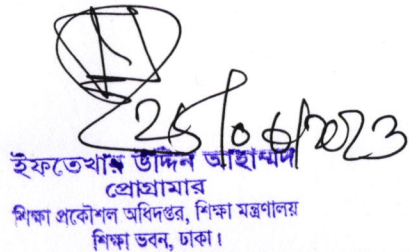 25/06/2023
ইফতেখার উদ্দিন আহাম্মদ
প্রোগ্রামার
শিক্ষা প্রকৌশল অধিদপ্তর, শিক্ষা মন্ত্রণালয়
শিক্ষা ভবন, ঢাকা।